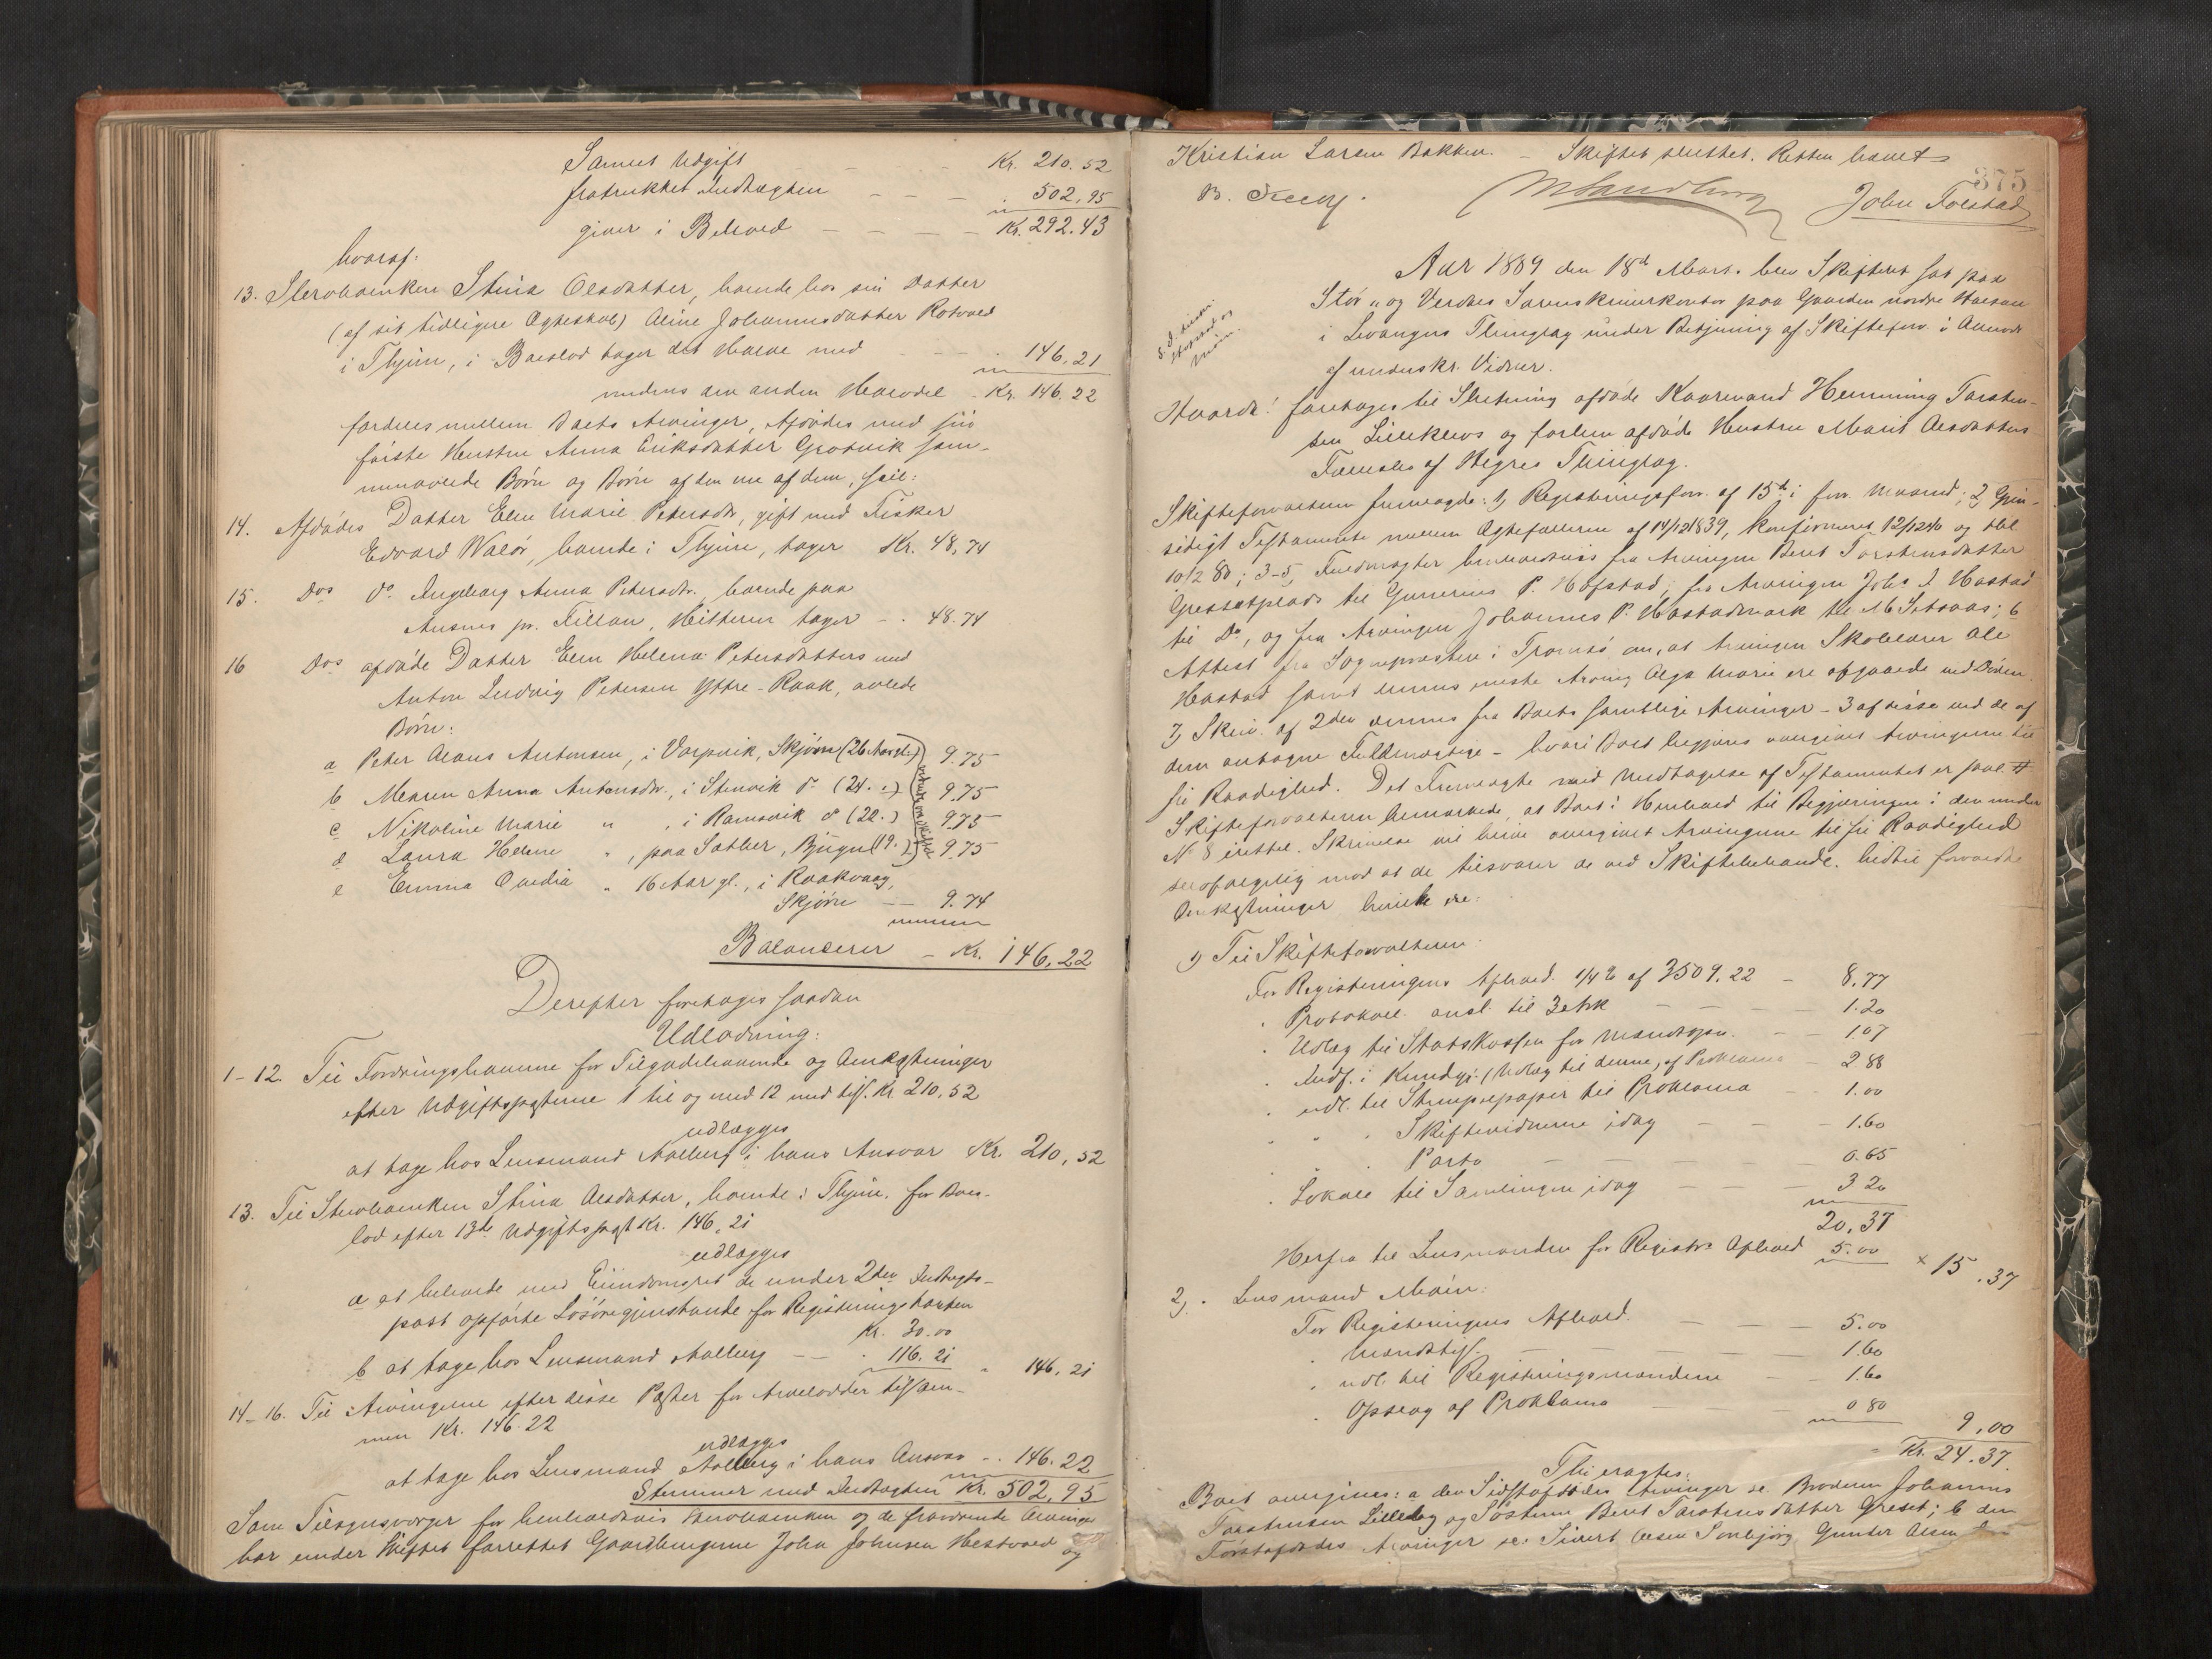 Samlet Udgift - - Kr. 210.52
fratrukket Indtægten - - - 502,95
giver i Behold - - - - Kr. 292.43
hvoraf:
13. Sterboenken Stina Olsdatter, boende hos sin Datter
(af sit tidligere Ægteskab) Aline Johannesdatter Rotvold
i Thjem, i Boeslod tager det Halve med - - - . 146.21
medens den anden Halvdel - Kr. 146.22
fordeles mellem Boets Arvinger, Afdødes med sin
første Hustru Anna Eriksdatter Grotvik sam-
menavlede Børn og Børn af den ene af dem, saal:
14. Afdødes Datter Elen Marie Petersdtr, gift med Fisker
Edvard Walør, boende i Thjem, tager Kr. 48,74
15. Dos do Ingeborg Anna Petersdtr. boende paa
Ausnes pr. Fillan, Hitteren tager - . 48.74
16 Dos afdøde Datter Elen Helena Petersdatters med
Anton Ludvig Petersen Yttre-Raak, avlede
Børn:
a Peter Olaus Antonsen, i Vorpvik, Skjørn (26 Aar gl.) 9.75
b Maren Anna Antonsdtr., i Stenvik do (24. ..) 9.75
c Nikoline Marie " , i Ramsvik do (22.) 9.75
d Laura Helene " , paa Sæther, Bjugn (19.) 9.75
e Emma Ovedia " 16 Aar gl., i Raakvaag,
Skjørn - - 9.74
Balancerer - Kr. 146,22
Derefter foretages saadan
Udlodning:
1-12. Til Fordringshaverne for Tilgodehavende og Omkostninger
efter Udgiftsposterne 1 til og med 12 med tils. Kr 210.52
udlægges
at tage hos Lensmand Aalberg i hans Ansvar Kr. 210,52
13. Til Sterboenken Stina Olsdatter, boende i Thjem, for Boes-
lod efter 13de Udgiftspost Kr. 146,21
udlægges
a at beholde med Eiendomsret de under 2den Indtægts-
post opførte Løsøregjenstande for Registreringstaxten
Kr. 30.00
b at tage hos Lensmand Aalberg - - . 116.21 " 146.21
14-16. Til Arvingerne efter disse Poster for Arvelodder tilsam-
men Kr. 146.22
udlægges
at tage hos Lensmand Aalberg i hans Ansvar - . 146.22
Stemmer med Indtægten Kr. 502,95
Som Tilsynsværger for henholdsvis Sterboenken og de fraværende Arvinger
har under Skiftet forrettet Gaardbrugerne John Johnsen Hestvold og
Kristian Larsen Bakken. - Skiftet sluttet. Retten hævet
375
B. MSandberg John Folstad
Aar 1889 den 18de Marts blev Skifteret sat paa
Stør- og Verdals Sorenskriverkontor paa Gaarden nordre Halsan
i Levangers Thinglag under Betjening af Skifteforv. i Overvær
af underskr. Vidner.
Hvorda: foretages til Slutning afdøde Kaarmand Henning Torsten-
sen Lilleklevs og forlen afdøde Hustru Marit Olsdatters
af Hegre Thinglag.
Skifteforvalteren fremlagde: 1, Registreringsforr. af 15de i forr. Maaned; 2, Gjen-
sidigt Testamente mellem Ægtefællerne af 14/12 1839, konfirmeret 12/12 40 og thl.
10/2 80; 3-5, Fuldmagter henholdsvis fra Arvingen Berit Torstensdatter
Gressetplads til Gunerius P. Hofstad; fra Arvingen Johs J. Hastad
til Do, og fra Arvingen Johannes P. Hastadmark til M Setsaas; 6
Attest fra Sognepresten i Tromsø om, at Arvingen Skolelærer Ole
Hastad samt dennes eneste Arving Olga Marie ere afgaaede ved Døden.
7, Skriv. af 2den dennes fra Boets samtlige Arvinger - 3 af disse ved de af
dem antagne Fuldmægtige - hvori Boet begjæres overgivet Arvingerne til
fri Raadighed. Det Fremlagte med Undtagelse af Testamentet er saal.
Skifteforvalteren bemærkede, at Boet i Henhold til Begjæringen i den under
No 8 Skrivelse vil blive overgivet Arvingerne til fri Raadighed
selvfølgelig mod at de tilsvarer de ved Skiftebehandl. hidtil forvoldte
Omkostninger hvilke ere:
1) Til Skifteforvalteren:
For Registreringens Afhold. 1/4 % af 3509.22 - 8.77
" Protokoll. ansl. til 3 Ark - - - 1.20
" Udlæg til Statskassen for Mandtpen. - - 1.07
" Indf. i Kundgj. (Udlæg til denne) af Proklama - 2 88
" udl. til Stempelpapir til Proklama - 1.00
" " " Skiftevidnerne idag - - - 1.60
" " " Porto - - - - 0.65
" Lokale til Samlingen idag - - - 3 20
20,37
Herfra til Lensmanden for Registrs Afhold 5.00 × 15.37
2, . Lensmand Moen:
For Registreringens Afhold. - - - 5.00
" - - - 1.60
" udl. til Registreringsmændene - - 1.60
" Opslag af Proklama - - - 0 80
9,00
Kr. 24.37
Thi eragtes:
Boet overgives: a den Sidstafdødes Arvinger se. Broderen Johannes
Torstensen Lillekley og Søsteren Berit Torstensdatter Greset; b den
Førstafdødes Arvinger se. Sivert Olsen Gunder Olsen